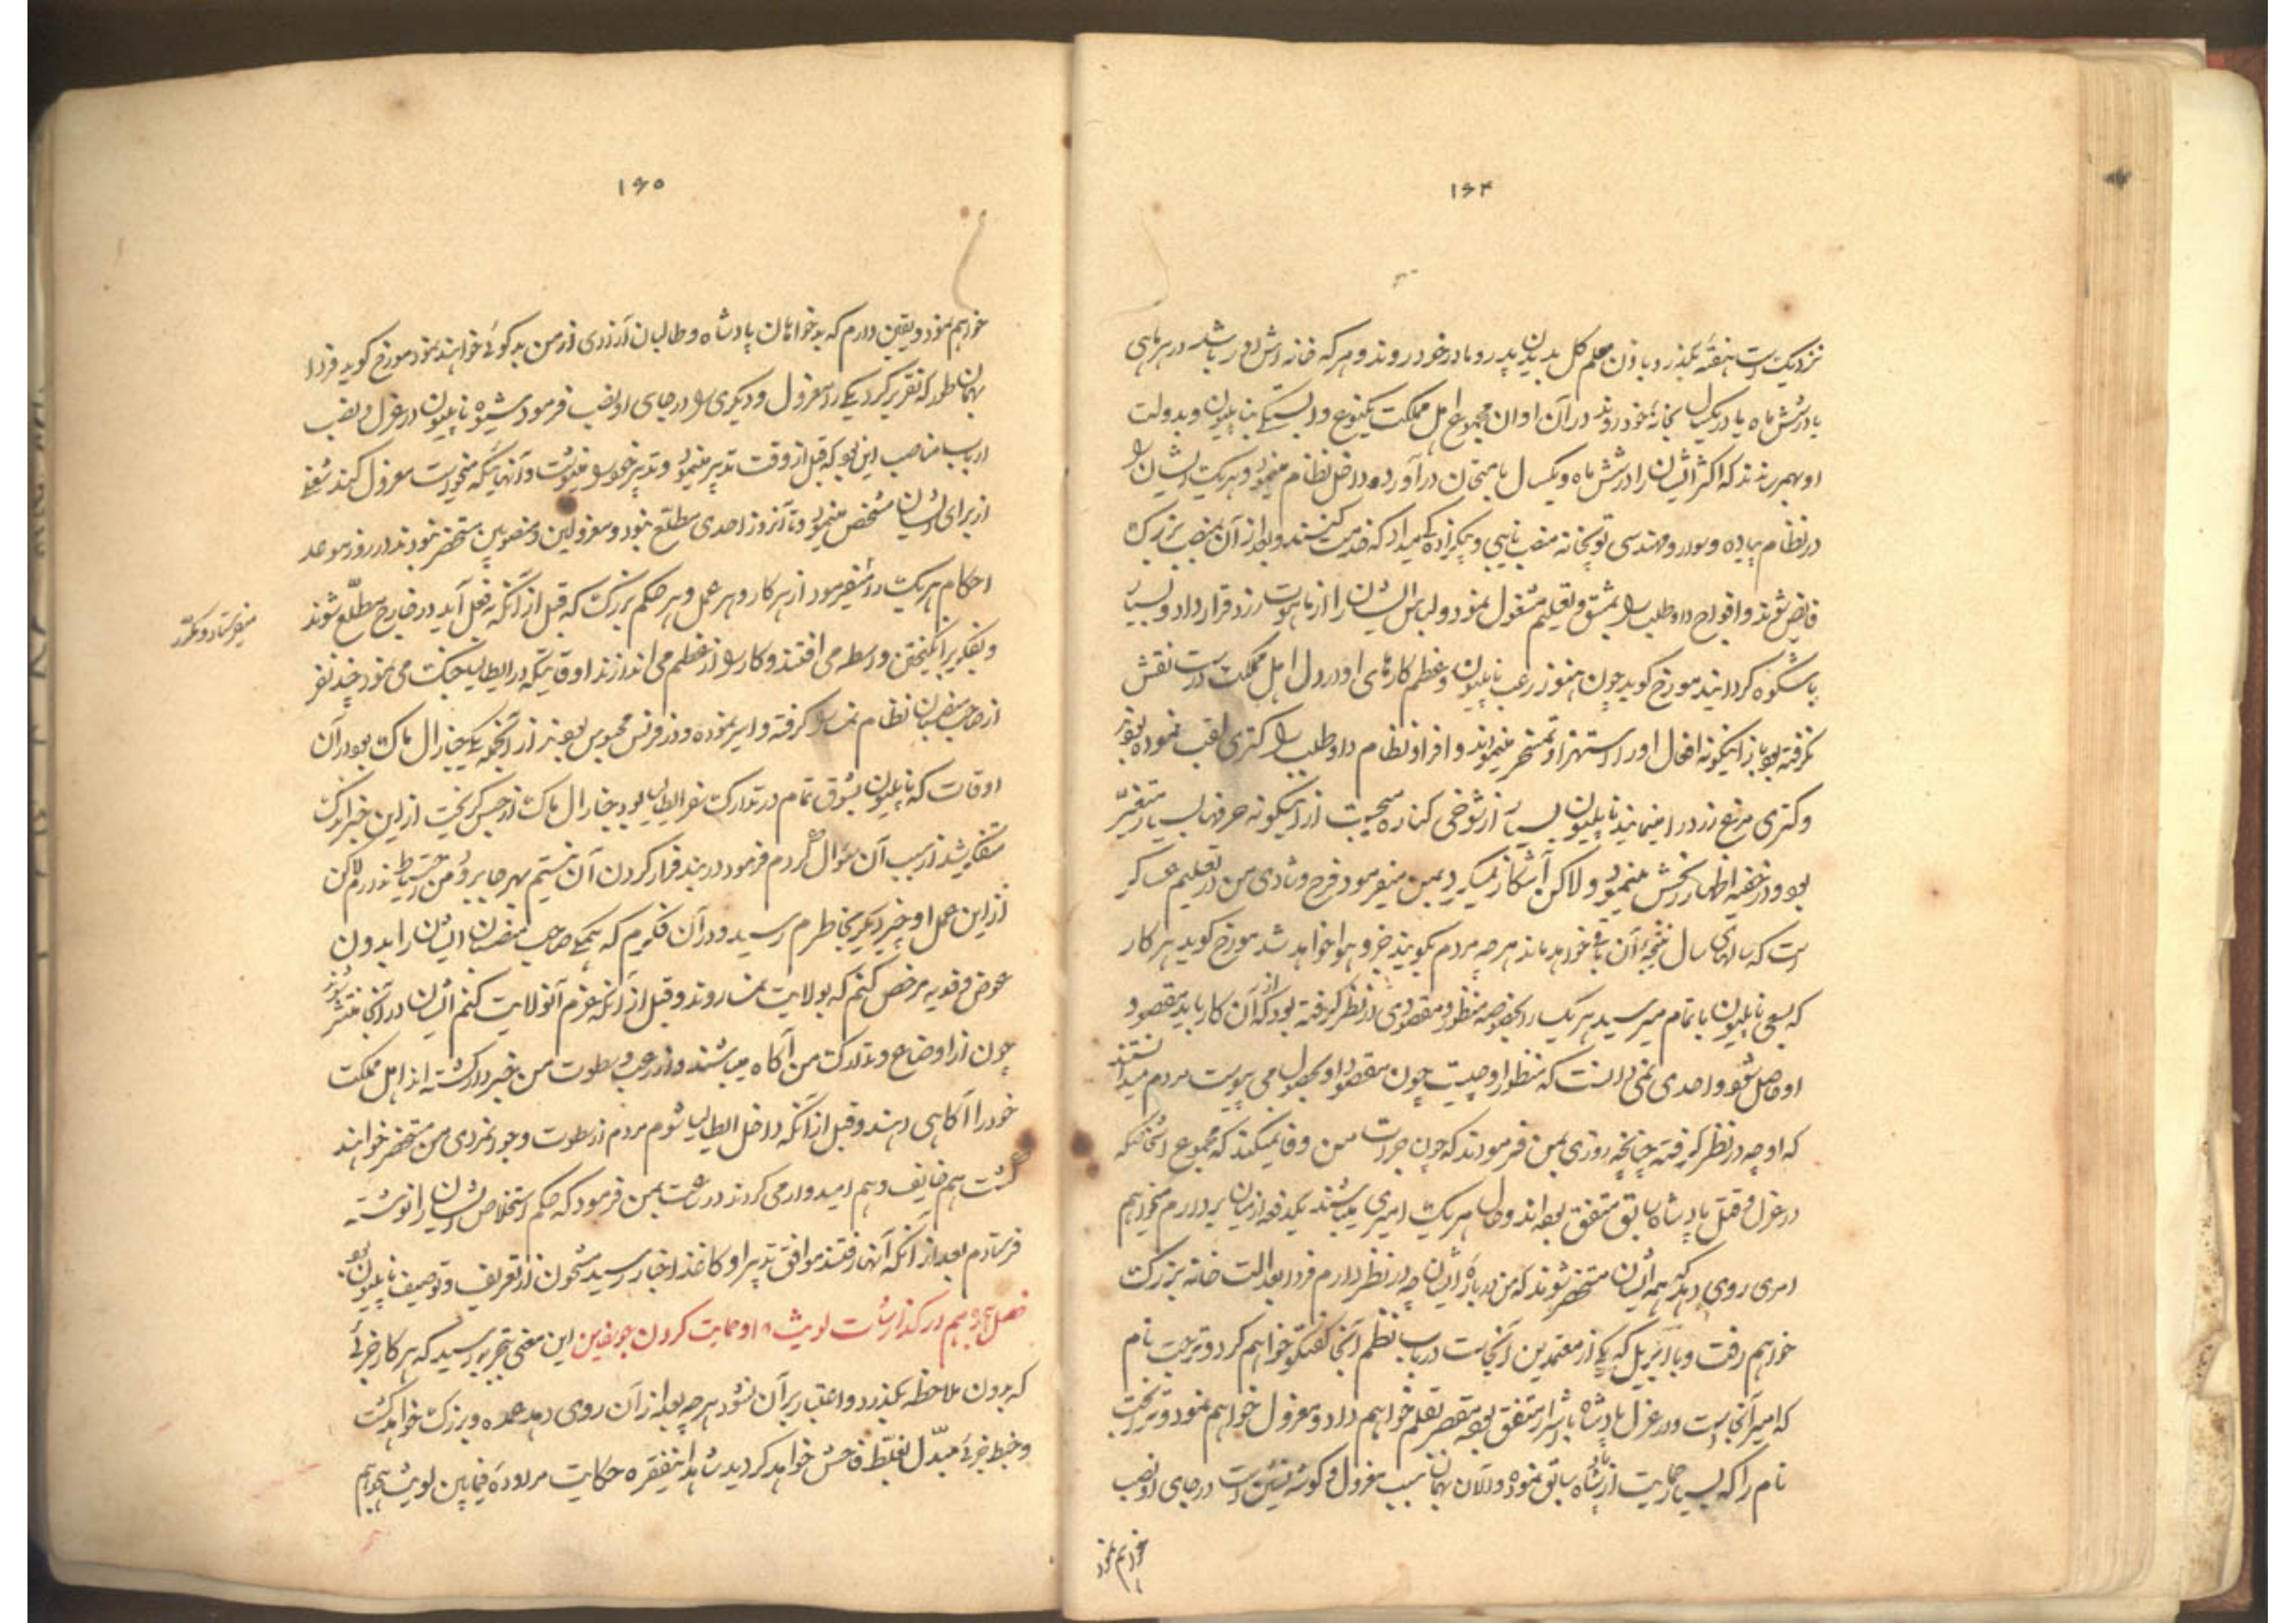 ۱۶۴
نزدیک است هفته بگذرد باذن معلم کل بدیدن پدر و مادر خود روند و هر که خانه اش دور باشد در هر ماهی
یا در شش ماه یا در یکسال بخانه خود روند در آن اوان مجموع اهل مملکت یکنوع وابستگی بناپلیون و بدولت
او بهمرساندند که اکثر ایشان را در شش ماه و یکسال بامتحان درآورده داخل نظام مینمود و هر یک ایشان را
در نظام پیاده و سواره و مهندسی توپخانه منصب نایبی و میداد که خدمت کنند و بعد از آن بمنصب بزرگ
فایض شوند و افواج داوطلب را بمشق و تعلیم مشغول نمود و لباس ایشان را از ماهوت زرد قرار داد و بسیار
باشکوه گردانید مورخ گوید چون هنوز رعب ناپلیون و عظم کارهای او در دل اهل مملکت درست نقش
نگرفته بود باز اینگونه افعال او را استهزا و تمسخر مینمودند و افراد نظام داوطلب را کنری لقب نموده بودند
و کنری مرغ زرد را مینامند ناپلیون بسیار از شوخی کناره میجست از اینگونه حرفها بسیار متغیر
بود و در خفیه اظهار رنجش مینمود ولاکن آشکار نمیکرد بمن میفرمود فرح و شادی من در تعلیم عساکر
است که سالهای سال نتیجه آن باقی خواهد ماند هر چه مردم بگویند جزو هوا خواهد شد مورخ گوید هر کار
که بسعی ناپلیون باتمام میرسید هر یک را بخصوصه منظور و مقصودی در نظر گرفته بود که از آن کار باید مقصود
او حاصل شود و احدی نمی دانست که منظور او چیست چون مقصود او بحصول می پیوست مردم میدانستند
که او چه در نظر گرفته چنانچه روزی بمن فرمودند که چون جرات من وفا نمیکند که مجموع اشخاصیکه
در عزل و قتل پادشاه سابق متفق بوده اند و حال هر یک امیری میباشند یکدفعه از میان بردارم میخواهم
امری روی دهد که همه ایشان مستحضر شوند که من درباره ایشان چه در نظر دارم فردا بعدالت خانه بزرگ
خواهم رفت و با که یکی از معتمدین آنجاست در باب نظم آنجا گفتگو خواهم کرد و ترجت نام
که امیر آنجاست و در عزل پادشاه باشرار متفق بوده مقصر بقلم خواهم داد و معزول خواهم نمود و ترنجت
نام را که بسیار حمایت از پادشاه سابق نموده و الآن بهمان سبب معزول و گوشه نشین است در جای او نصب
خواهم نمود
۱۶۵
خواهم نمود و یقین دارم که بدخواهان پادشاه و طالبان آزادی از من بدگوئی خواهند نمود مورخ گوید فردا
بهمان طور که تقریر کرد یکی را معزول و دیگری را در جای او نصب فرمود شیوه ناپلیون در عزل و نصب
ارباب مناصب این بود که قبل از وقت تدبیر مینمود و تدبیر خود را مینوشت و آنهائیکه میخواست معزول کند شغلی
از برای ایشان مشخص مینمود و تا آنروز احدی مطلع نبود و معزولین و منصوبین مستحضر نبودند در روز موعد
احکام هر یک را میفرمود از هر کار و هر عمل و هر حکم بزرگ که قبل از آنکه بفعل آید در خارج مطلع شوند
میفرستاد و مکرر
و بفکر برانگیختن واسطه می افتند و کار را از عظم می اندازند اوقاتیکه در ایطالیا جنگ می نمود چند نفر
از صاحب منصبان نظام نمسا را گرفته و اسیر نموده و در فرنس محبوس بودند از آنجمله یکی جنارال ماک بود در آن
اوقات که ناپلیون بشوق تمام در تدارک سفر ایطالیا بود جنارال ماک از حبس گریخت از این خبر اندک
متفکر شد از سبب آن سوال کردم فرمود در بند فرار کردن آن نیستم بهر جا برود من احتیاط ندارم لاکن
از این عمل او چیز دیگر بخاطرم رسید و در آن فکرم که همگی صاحب منصبان ایشان را بدون
عوض و فدیه مرخص کنم که بولایت نمسا روند و قبل از آنکه عزم آنولایت کنم ایشان در آنجا منتشر شوند
چون از اوضاع و تدارک من آگاه میباشند و از رعب و سطوت من خبردار گشته اند اهل مملکت
خود را آگاهی دهند و قبل از آنکه داخل ایطالیا شوم مردم از سطوت و جوانمردی من مستحضر خواهند
گشت هم خایف و هم امیدوار می گردند در ساعت بمن فرمود که حکم استخلاص ایشان را نوشته
فرستادم بعد از آنکه آنها رفتند موافق تدبیر او کاغذ اخبار رسید مشحون از تعریف و توصیف ناپلیون بود.
فصل هجدهم در گذارشات لویث ۱۸ و حمایت کردن جویفین این معنی بتجربه رسید که هر کار جزئی
که بدون ملاحظه بگذرد و اعتبار بر آن نشود هر چه بعد از آن روی دهد عمده و بزرگ خواهد گشت
و خبط جزئی مبدل بغلط فاحش خواهد گردید شاهد اینفقره حکایت مراوده فیمابین لویث هجدهم